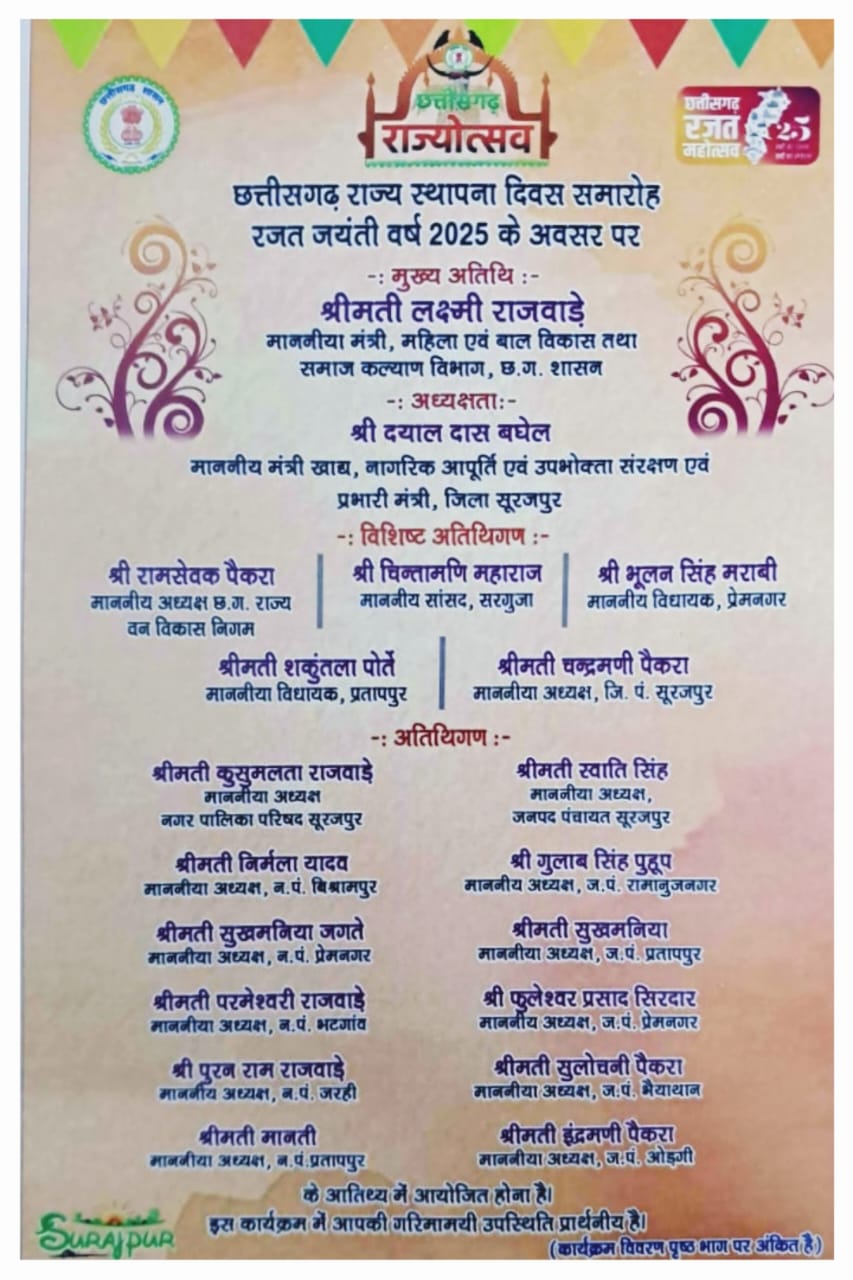 छत्तीसगढ़ शासन
छत्तीसगढ़
राज्योत्सव
छत्तीसगढ़
रजत
महोत्सव
25
छत्तीसगढ़ राज्य स्थापना दिवस समारोह
रजत जयंती वर्ष 2025 के अवसर पर
-: मुख्य अतिथि :-
श्रीमती लक्ष्मी राजवाड़े
माननीया मंत्री, महिला एवं बाल विकास तथा
समाज कल्याण विभाग, छ.ग. शासन
-: अध्यक्षता:-
श्री दयाल दास बघेल
माननीय मंत्री खाद्य, नागरिक आपूर्ति एवं उपभोक्ता संरक्षण एवं
प्रभारी मंत्री, जिला सूरजपुर
-: विशिष्ट अतिथिगण :-
श्री रामसेवक पैकरा
माननीय अध्यक्ष छ.ग. राज्य
वन विकास निगम
श्री चिन्तामणि महाराज
माननीय सांसद, सरगुजा
श्री भूलन सिंह मराबी
माननीय विधायक, प्रेमनगर
श्रीमती शकुंतला पोर्ते
माननीया विधायक, प्रतापपुर
श्रीमती चन्द्रमणी पैकरा
माननीया अध्यक्ष, जि. पं. सूरजपुर
-: अतिथिगण :-
श्रीमती कुसुमलता राजवाड़े
माननीया अध्यक्ष
नगर पालिका परिषद सूरजपुर
श्रीमती स्वाति सिंह
माननीया अध्यक्ष,
जनपद पंचायत सूरजपुर
श्रीमती निर्मला यादव
माननीया अध्यक्ष, न.पं. बिश्रामपुर
श्री गुलाब सिंह पुहूप
माननीय अध्यक्ष, ज.पं. रामानुजनगर
श्रीमती सुखमनिया जगते
माननीया अध्यक्ष, न.पं. प्रेमनगर
श्रीमती सुखमनिया
माननीया अध्यक्ष, ज.पं. प्रतापपुर
श्रीमती परमेश्वरी राजवाड़े
माननीया अध्यक्ष, न.पं. भटगांव
श्री फुलेश्वर प्रसाद सिरदार
माननीय अध्यक्ष, ज.पं. प्रेमनगर
श्री पुरन राम राजवाड़े
माननीय अध्यक्ष, न.पं. जरही
श्रीमती सुलोचनी पैकरा
माननीया अध्यक्ष, ज.पं. भैयाथान
श्रीमती मानती
माननीया अध्यक्ष, न.पं.प्रतापपुर
श्रीमती इंद्रमणी पैकरा
माननीया अध्यक्ष, ज.पं. ओड़गी
के आतिथ्य में आयोजित होना है।
इस कार्यक्रम में आपकी गरिमामयी उपस्थिति प्रार्थनीय है।
(कार्यक्रम विवरण पृष्ठ भाग पर अंकित है)
SURAJPUR